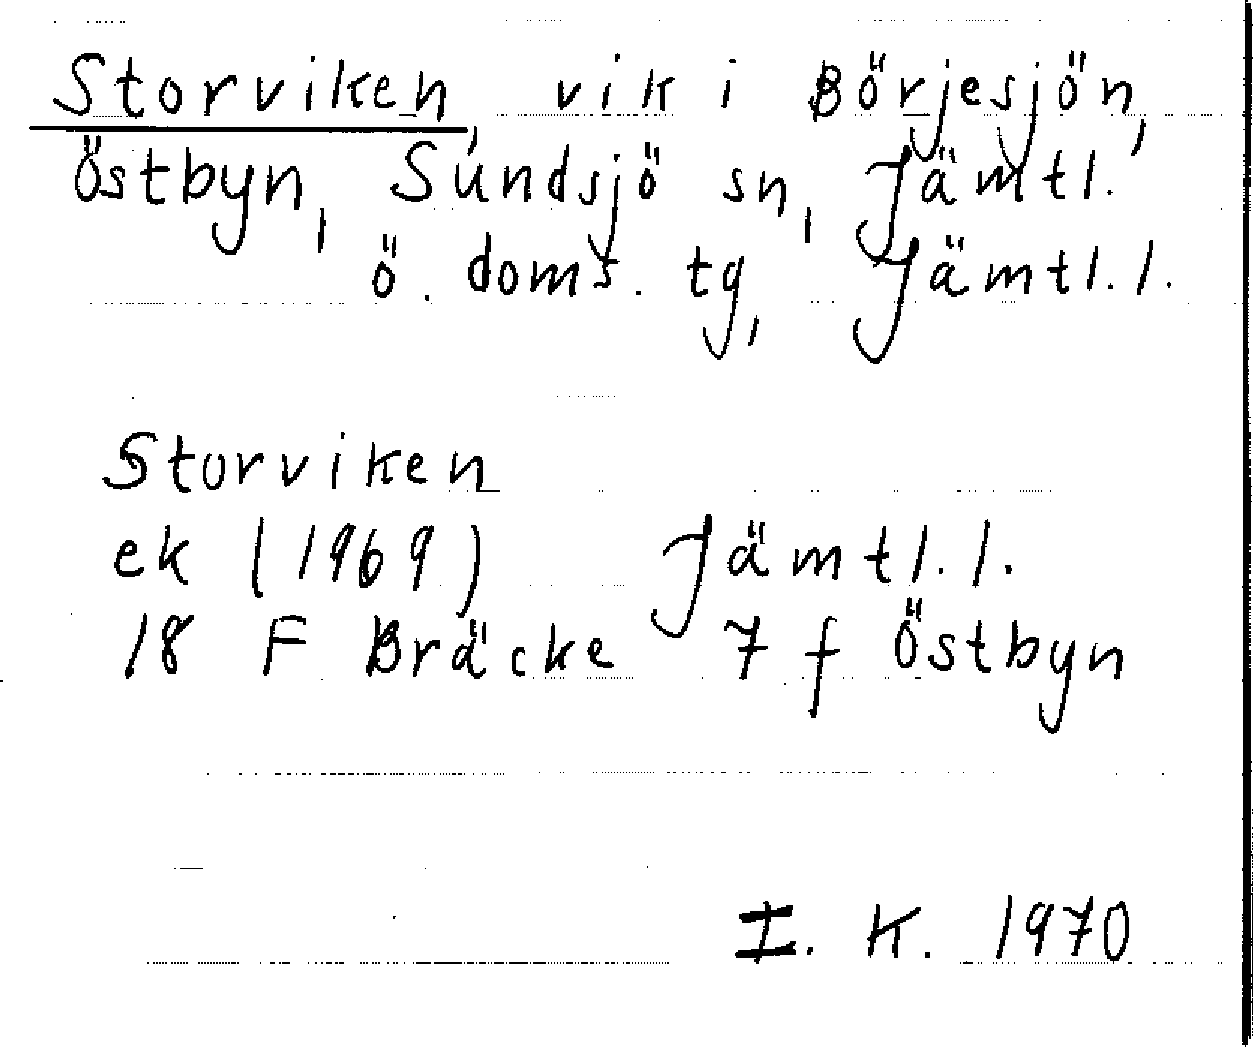 Storviken, vik i Börjesjön,
Östbyn, Sundsjö sn, Jämtl.
ö. doms. tg, Jämtl. l.
Storviken
ek (1969) Jämtl. l.
18 F Bräcke 7 f Östbyn
I. K. 1970